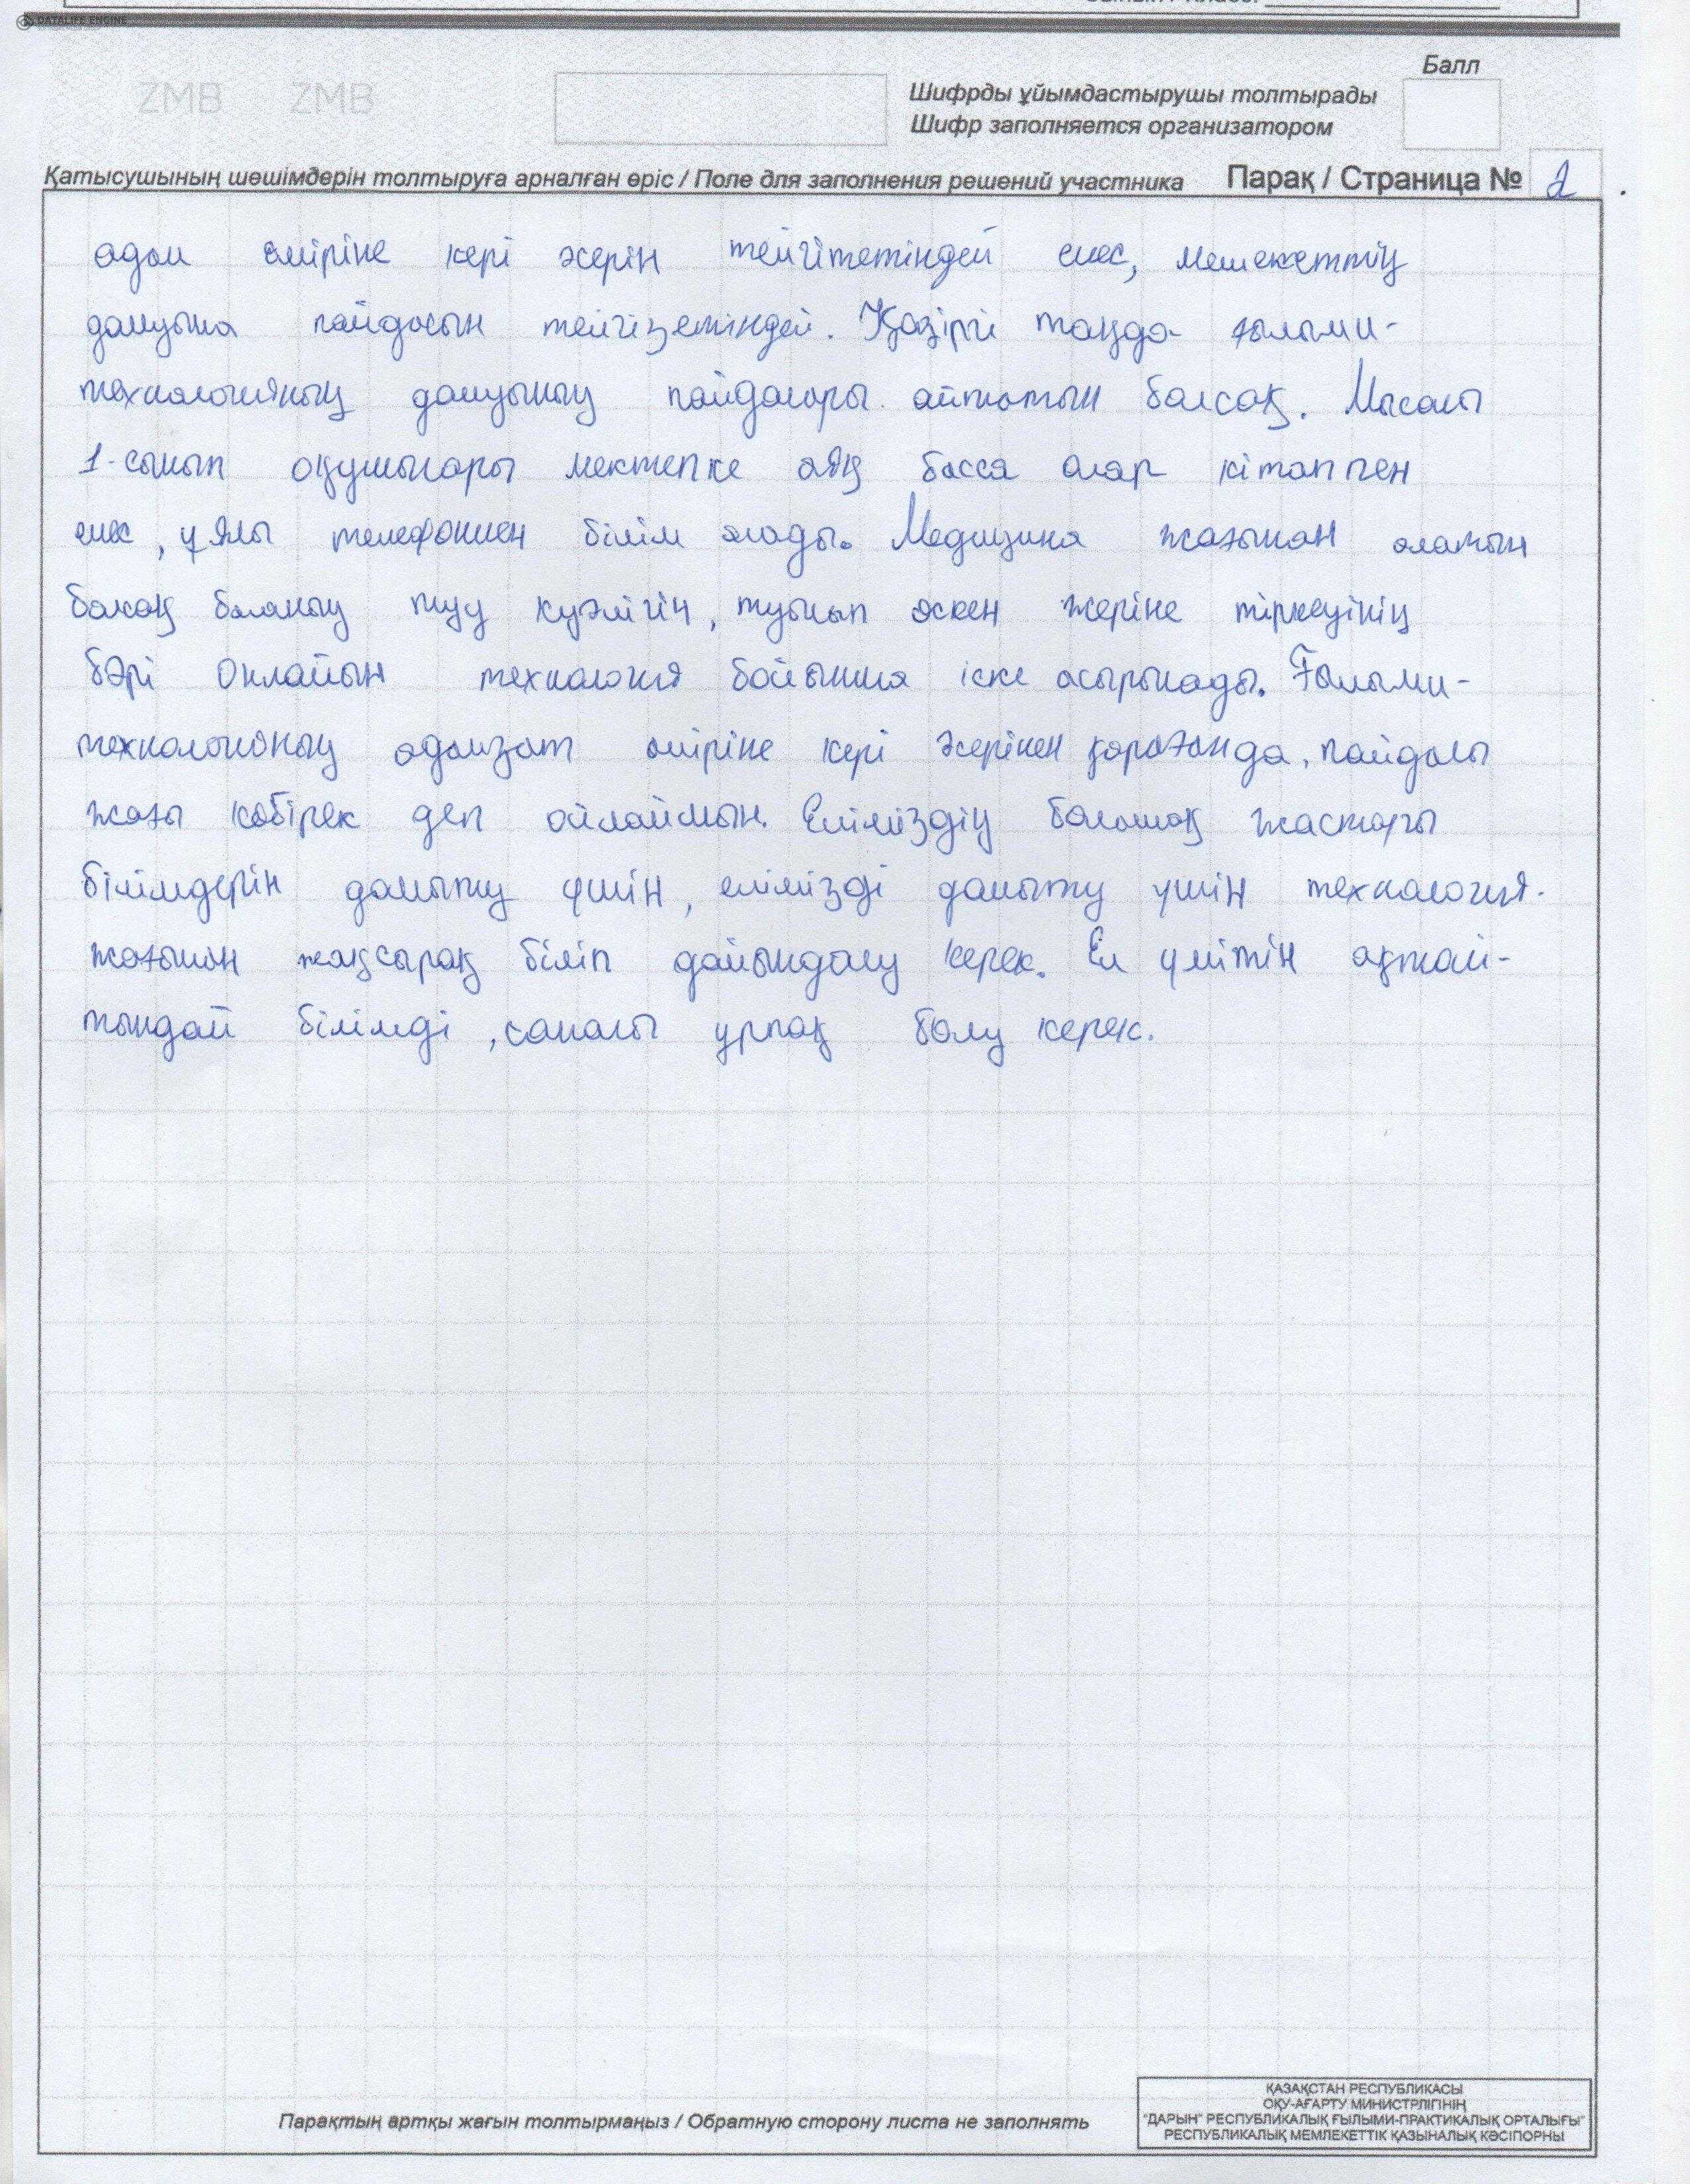 DATALIFE ENGINE
ZMB ZMB
Балл
Шифрды ұйымдастырушы толтырады
Шифр заполняется организатором
Қатысушының шешімдерін толтыруға арналған өріс / Поле для заполнения решений участника
Парақ / Страница № 2
адам өміріне кері әсерін тейгітетіндей емес, мемлекеттің
дамуына пайдасын тейгізетіндей. Қазіргі таңда ғылыми-
технологияның дамуының пайдалары айтатын болсақ. Мысалы
1-сынып оқушылары мектепке аяқ басса олар кітаппен
емес, ұялы телефонмен білім алады. Медицина жағынан алатын
болсақ баланың туу куәлігін, туылып өскен жеріне тіркеуінің
бәрі онлайын технология бойынша іске асырылады. Ғылыми-
технологияның адамзат өміріне кері әсерінен қарағанда, пайдалы
жағы көбірек деп ойлаймын. Еліміздің болашақ жастары
білімдерін дамыту үшін, елімізді дамыту үшін технология-
жағынан жақсырақ біліп дайындалу керек. Ел үмітін ақтай-
тындай білімді, саналы ұрпақ болу керек.
Парақтың артқы жағын толтырмаңыз / Обратную сторону листа не заполнять
ҚАЗАҚСТАН РЕСПУБЛИКАСЫ
ОҚУ-АҒАРТУ МИНИСТРЛІГІНІҢ
"ДАРЫН" РЕСПУБЛИКАЛЫҚ ҒЫЛЫМИ-ПРАКТИКАЛЫҚ ОРТАЛЫҒЫ"
РЕСПУБЛИКАЛЫҚ МЕМЛЕКЕТТІК ҚАЗЫНАЛЫҚ КӘСІПОРНЫ